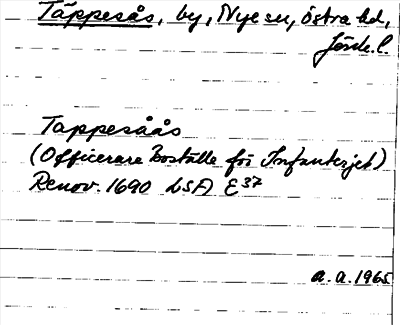 Täppesås, by, Nye sn, Östra hd,
Jönk. l.
Tappesåås
(Officerare Boställe för Infanteriet)
Renov. 1690 LSA E37
a.a. 1965